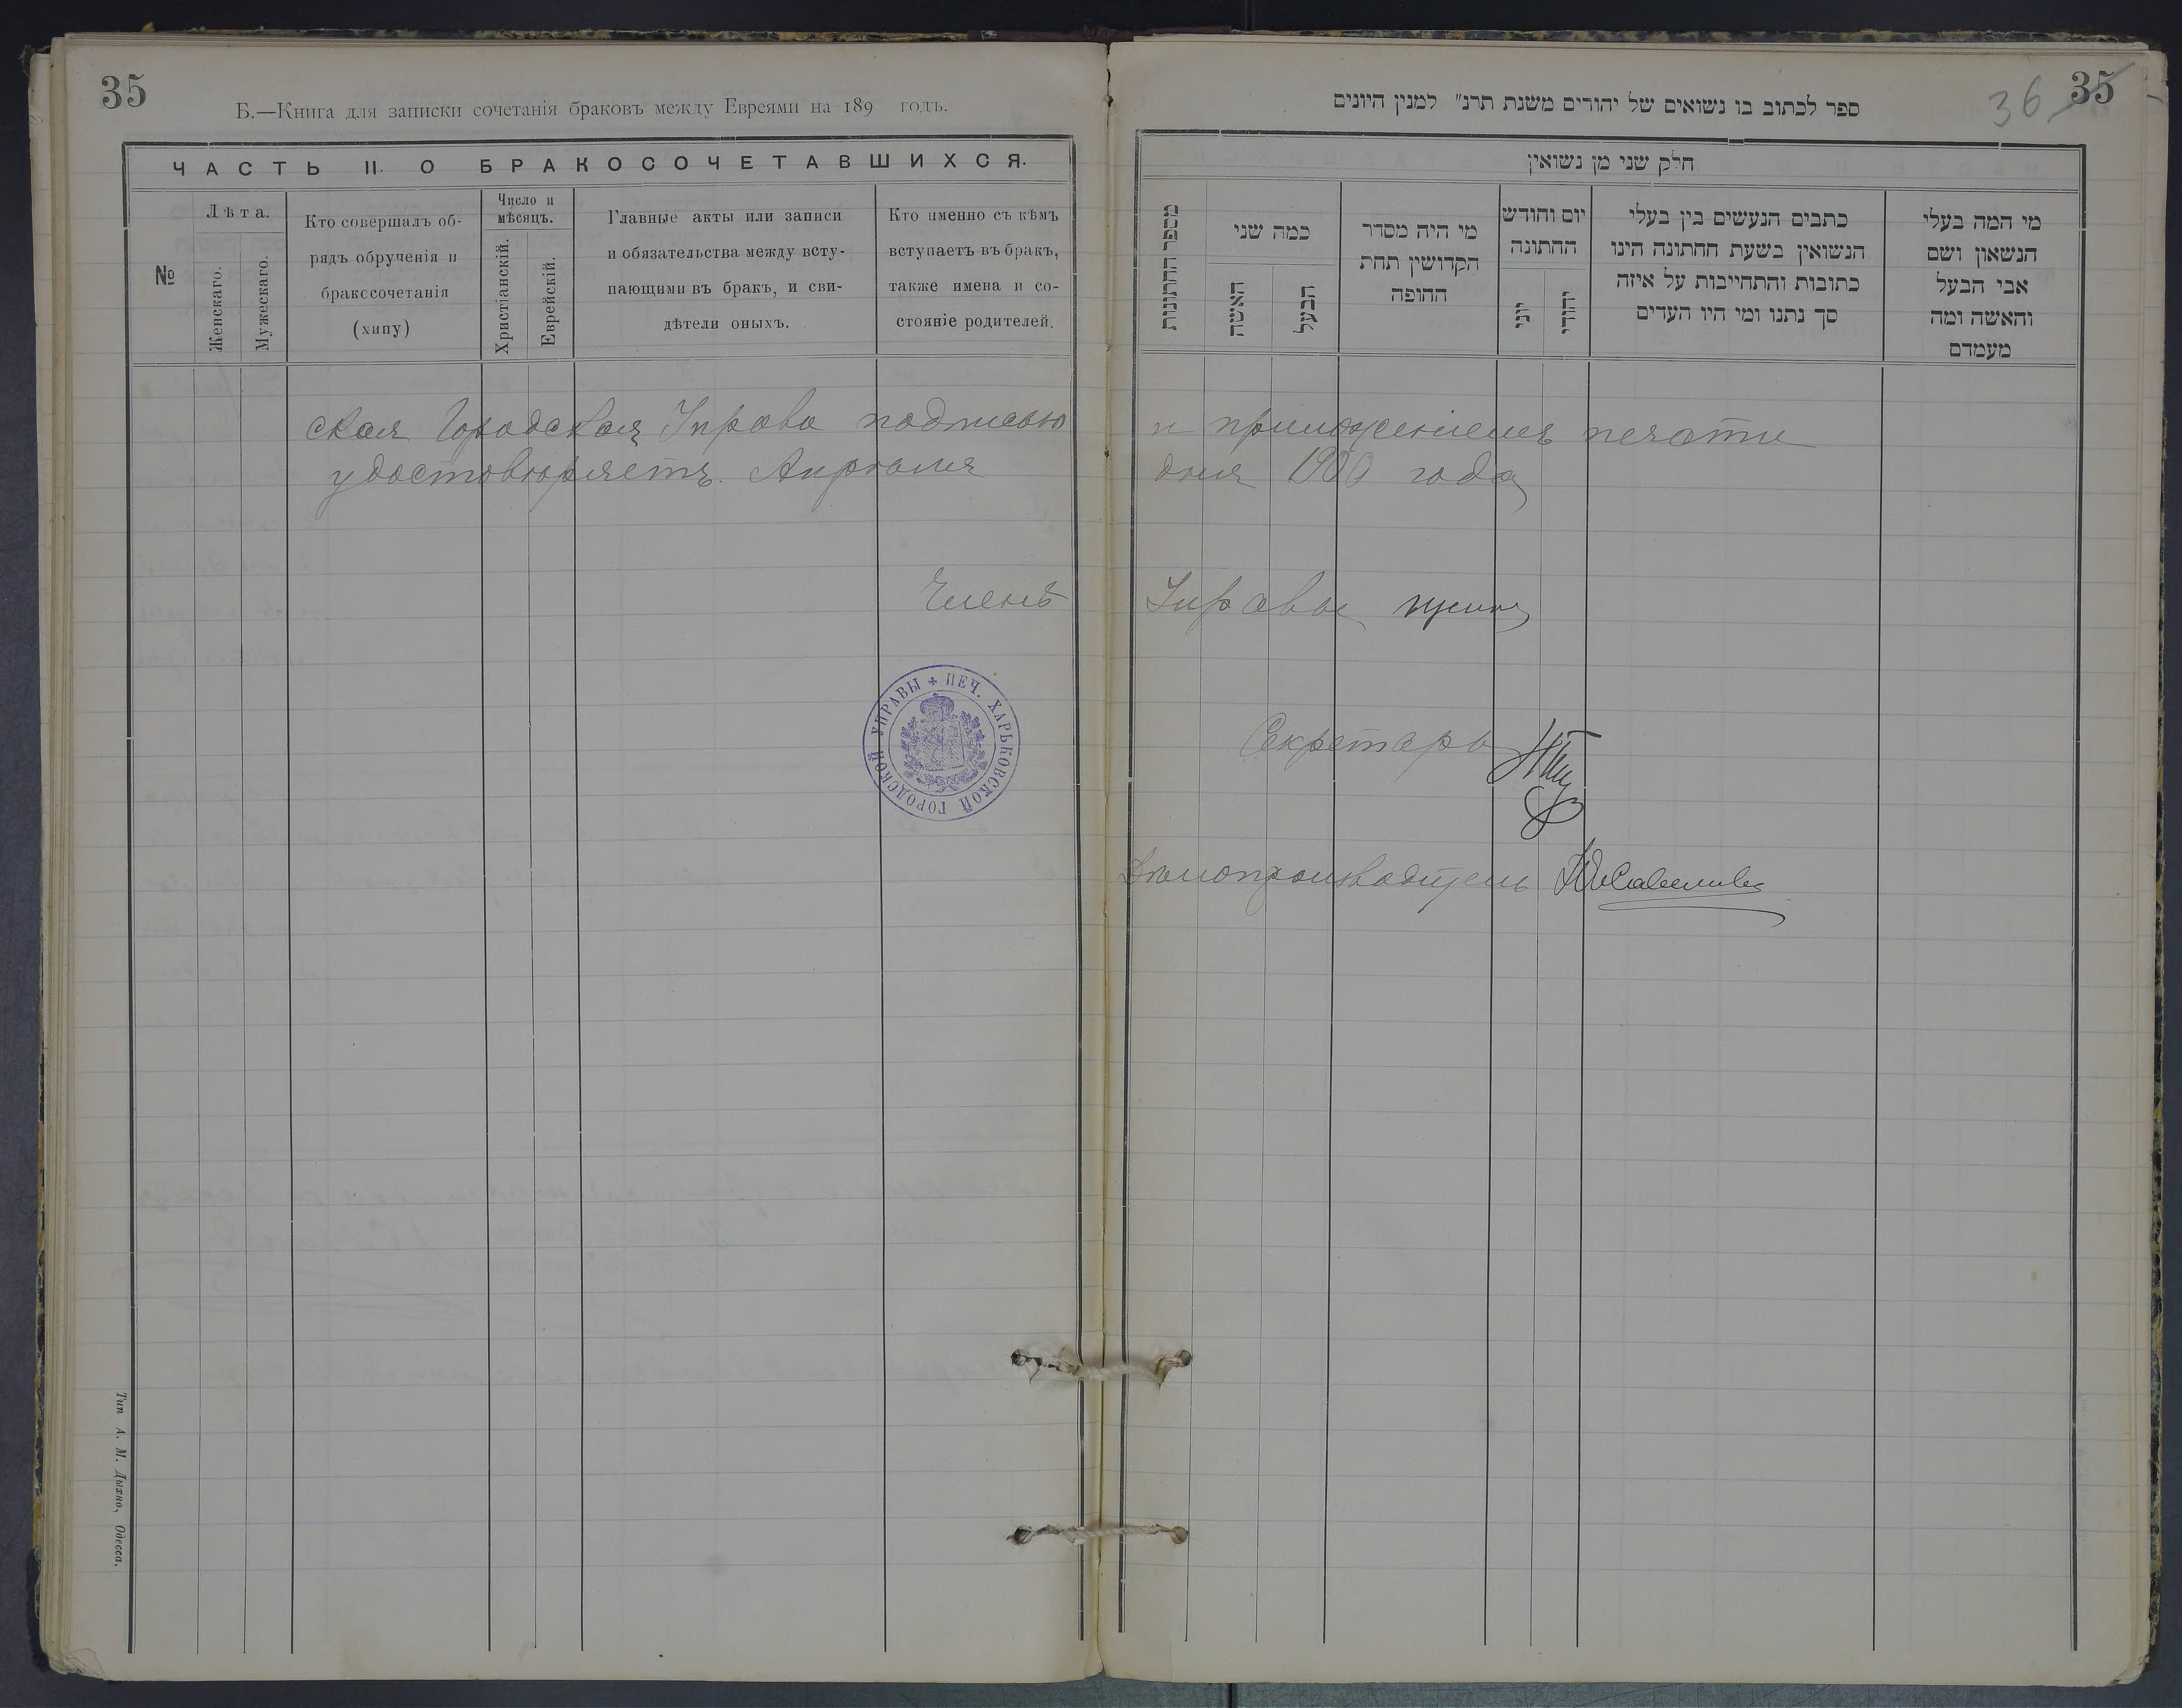 35
Б.—Книга для записки сочетанія браковъ между Евреями на 189 годъ.
ЧАСТЬ II. О БРАКОСОЧЕТАВШИХСЯ.
№
Лѣта.
Женскаго.
Мужескаго.
Кто совершалъ об-
рядъ обрученія и
бракосочетанія
(хипу)
Число и
мѣсяцъ.
Христіанскій.
Еврейскій.
Главные акты или записи
и обязательства между всту-
пающими въ бракъ, и сви-
дѣтели оныхъ.
Кто именно съ кѣмъ
вступаетъ въ бракъ,
также имена и со-
стояніе родителей.
35
36
ספר לכתוב בו נשואים של יהורים משנת תרנ״ למנין היונים
חלק שני מן נשואין
מספר החתונות
כמה שני
האשה
הבעל
מי היה מסדר
הקדושין תחת
החופה
יום וחודש
החתונה
יוני
יהודי
כתבים הנעשים בין בעלי
הנשואין בשעת החתונה הינו
כתובות והתחייבות על איזה
סך נתנו ומי היו העדים
מי המה בעלי
הנשאון ושם
אבי הבעל
והאשה ומה
מעמדם
ская Городская Управа подписью и приложеніемъ печати
удостовѣряетъ. Апрѣля дня 1900 года
Членъ Управы
ПЕЧ. ХАРЬКОВСКОЙ ГОРОДСКОЙ УПРАВЫ
Секретарь
Дѣлопроизводитель
Тип А. М. Дыхно, Одесса.